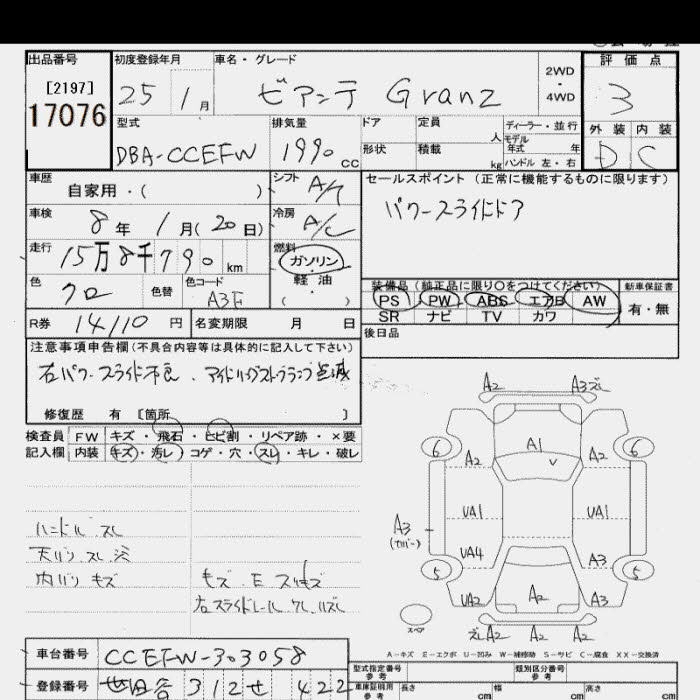 出品番号 初度登録年月 車名・グレード 評価点
[2197]
17076
25 1月 ビアンテ Granz 2WD・4WD 3
型式 排気量 ドア 定員 人 ディーラー・並行 外装 内装
DBA-CCEFW 1990cc 形状 積載 kg モデル年式 年 ハンドル 左・右 D C
車歴 自家用・( ) シフト A/T セールスポイント (正常に機能するものに限ります)
車検 8年 1月(20日) 冷房 A/C パワースライドドア
走行 15万8千790km 燃料 ガソリン・軽油・( )
色 クロ 色替 色コード A3F
装備品 (純正品に限り○をつけてください) 新車保証書
PS PW ABS エアB AW 有・無
SR ナビ TV カワ
R券 14110円 名変期限 月 日 後日品
注意事項申告欄 (不具合内容等は具体的に記入して下さい)
右パワースライド不良、アイドリングストップランプ点滅
修復歴 有 [箇所 ]
検査員 FW キズ・飛石・ヒビ割・リペア跡・×要
記入欄 内装 キズ・汚レ・コゲ・穴・スレ・キレ・破レ
ハンドル スレ
天バリ スレ
内バリ キズ
右スライドレール
A2 A3
6 A1 6
A2 A2
UA1 UA1
A3
(カバー)
UA4 A3
5 5
UA2 A2 A3
スペア
A2 A2 A2
A-キズ E-エクボ U-凹み W-補修跡 S-サビ C-腐食 XX-交換済
車台番号 CCEFW-303058
型式指定番号 参考 類別区分番号 参考
登録番号 世田谷 312 せ 422
車庫証明用 参考 長さ cm 幅 cm 高さ cm